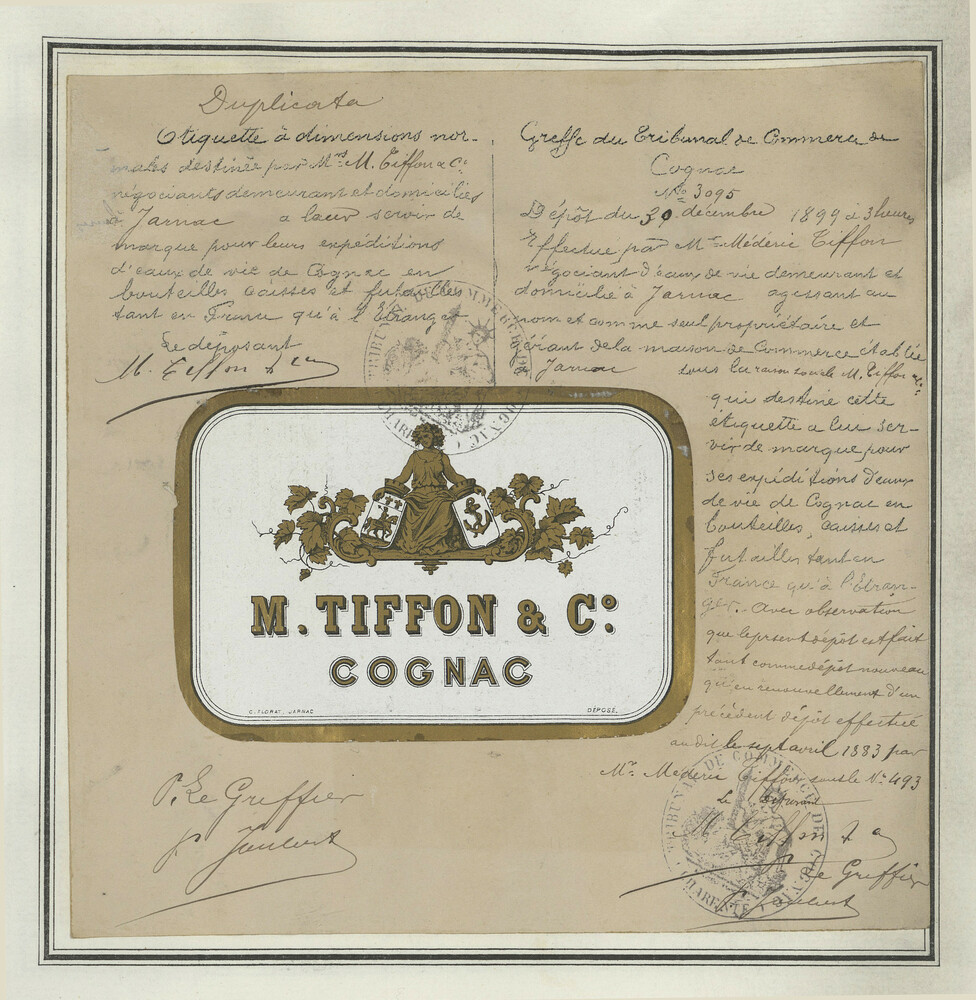 Duplicata
Etiquette à dimensions nor-
males destinée par Mrs M. Tiffon & Co
négociants demeurant et domiciliés
à Jarnac a leur servir de
marque pour leurs expéditions
d'eaux de vie de Cognac en
bouteilles caisses et futailles
tant en France qu'à l'Etranger
Le déposant
M. Tiffon & Co
Greffe du Tribunal de Commerce de
Cognac
No 3095
Dépôt du 30 décembre 1899 à 3 heures
Effectué par Mr Médéric Tiffon
négociant d'eaux de vie demeurant et
domicilié à Jarnac agissant au
nom et comme seul propriétaire et
gérant de la maison de Commerce établie
à Jarnac sous la raison sociale M. Tiffon & Co
qui destine cette
étiquette a lui ser-
vir de marque pour
ses expéditions d'eaux
de vie de Cognac en
bouteilles, caisses et
futailles tant en
France qu'à l'Etran-
ger. Avec observation
que le présent dépôt est fait
tant comme dépôt nouveau
qu'en renouvellement d'un
précédent dépôt effectué
audit le sept avril 1883 par
Mr. Médéric Tiffon sous le No 493
Le déposant
M. Tiffon & Co
P. Le Greffier
Joubert
TRIBUNAL DE COMMERCE DE COGNAC
CHARENTE
M. TIFFON & Co.
COGNAC
C. FLORAT, JARNAC
DÉPOSÉ.
P. Le Greffier
Joubert
TRIBUNAL DE COMMERCE DE COGNAC
CHARENTE